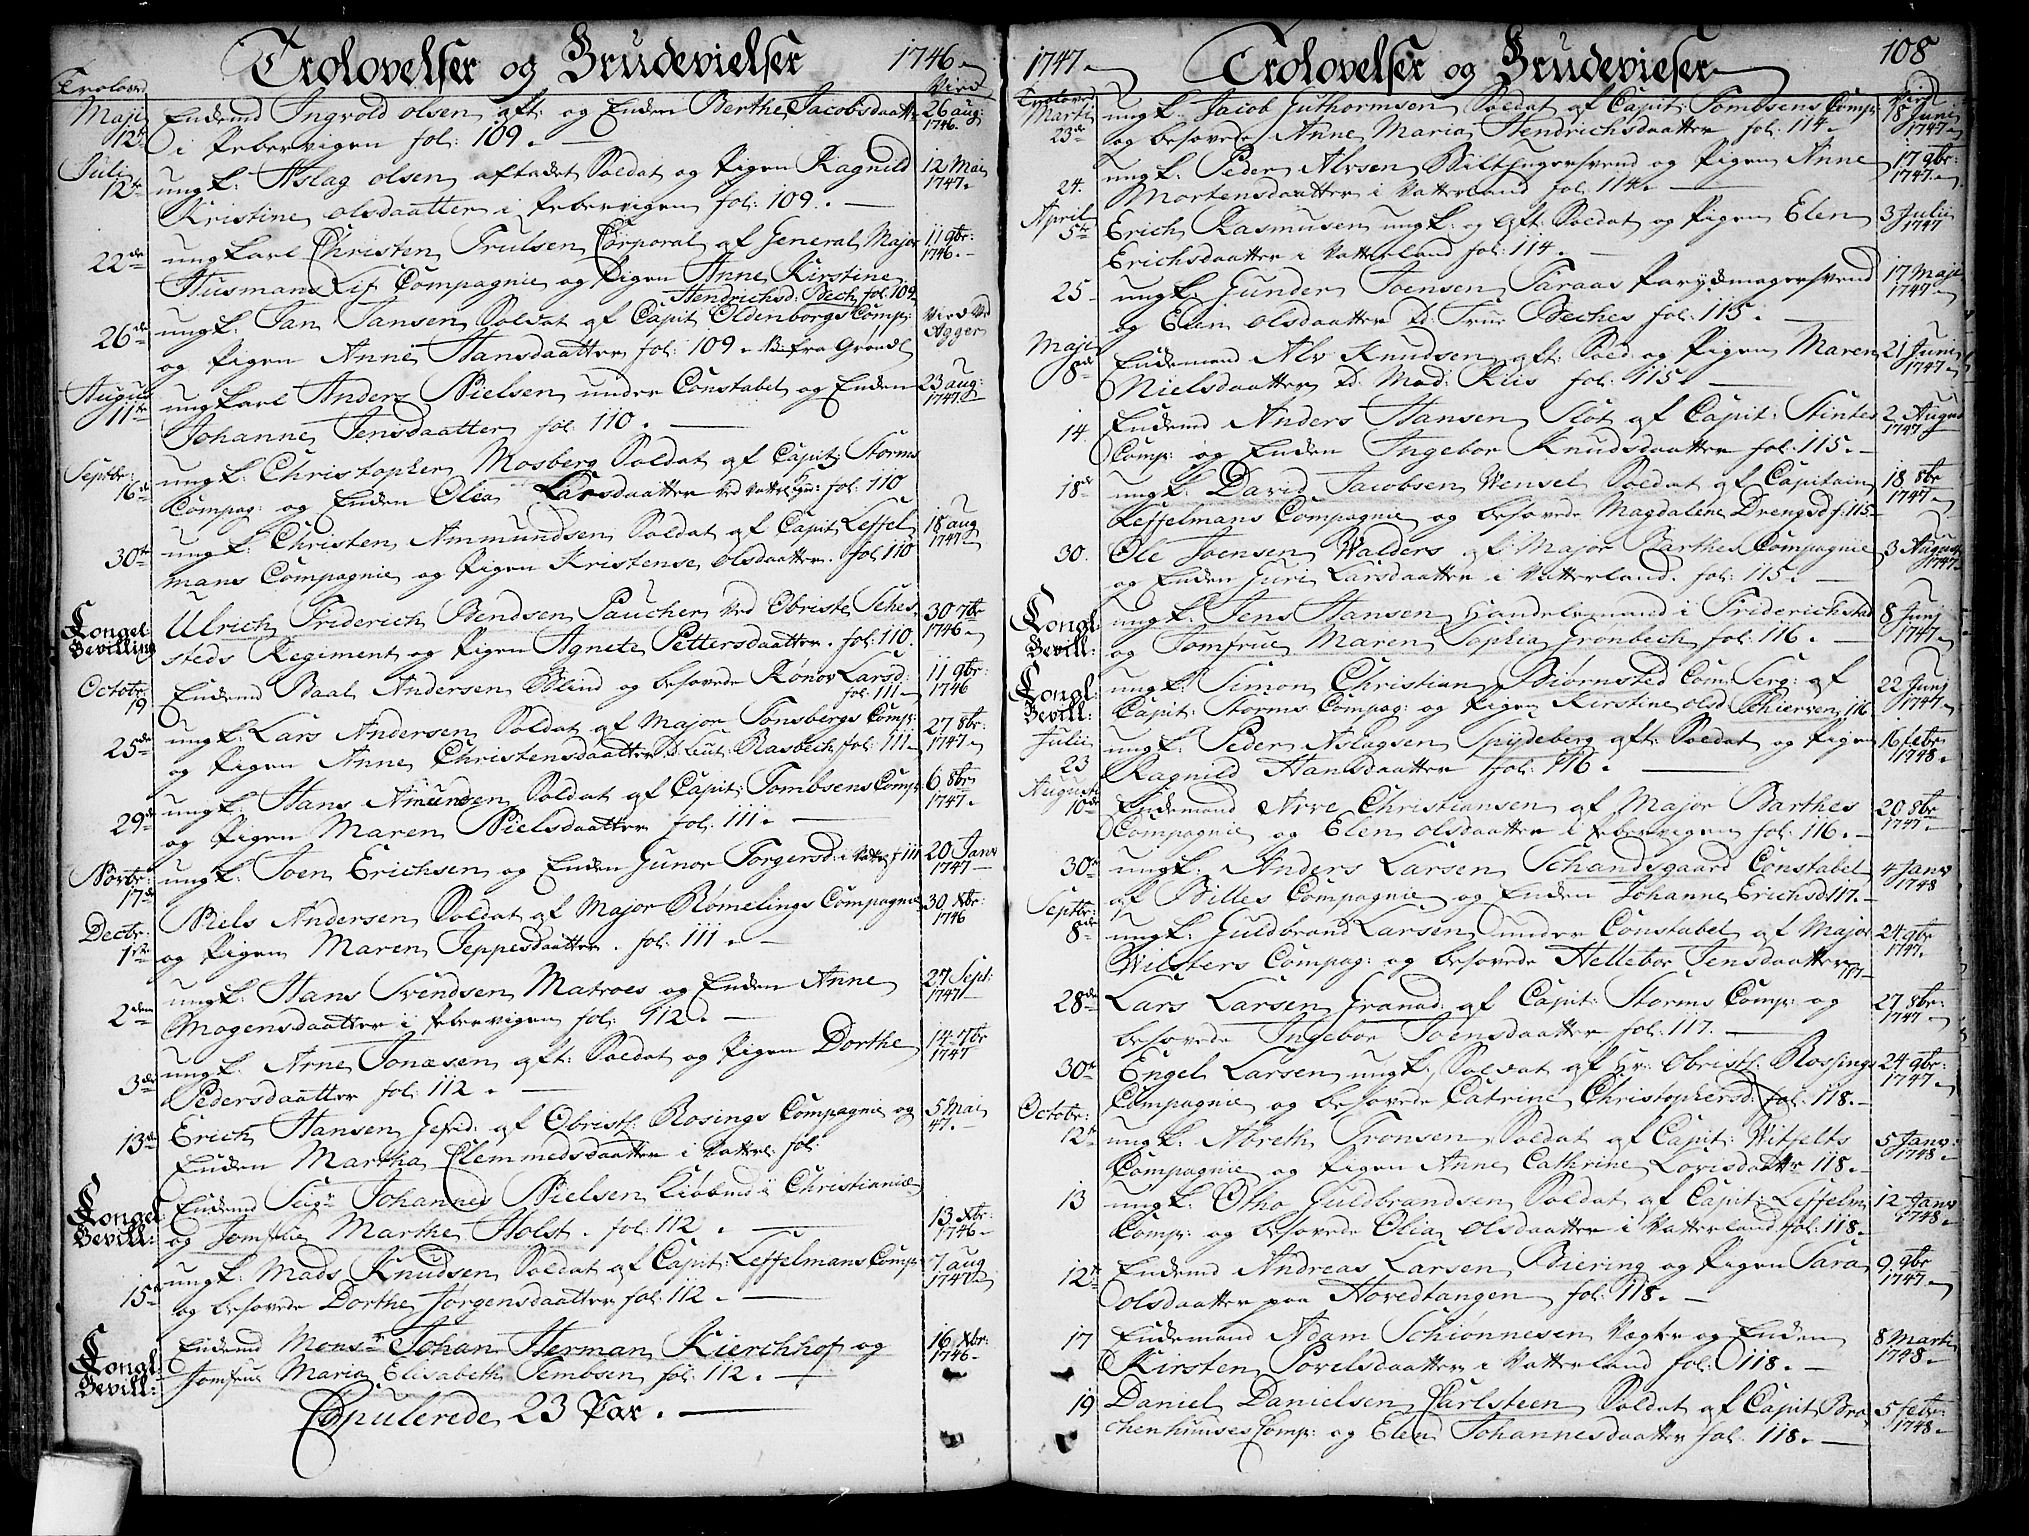 Trolovelser og Brudevielser 1746
Trolovd Vied
Maji Enkemd Ingvold Olsen aft: og Enken Berthe Jacobsdaatter 26 aug:
12te i Pebervigen fol: 109. 1746.
Julii ungk: Aslag Olsen aftadet Soldat og Pigen Ragnild 12 Mai
12te Kristine Olsdaatter i Pebervigen fol: 109. 1747.
22de ungkarl Christen Trulsen Corporal af General Major 11 9br:
Husmans Lif Compagnie og Pigen Anne Kirstine 1746.
Hendrichsd: Bech fol: 109
26de ungk: Jan Jansen Soldat af Capit Oldenborgs Comp: Vied ved
og Pigen Anne Hansdaatter fol: 109 fra Grændl Agger
August ungkarl Anders Nielsen under Constabel og Enken 23 aug:
11te Johanne Jensdaatter fol: 110. 1747.
Septbr: ungk: Christopher Mosberg Soldat af Capit: Storms
16de Compag: og Enken Olia Larsdaatter fol: 110
ungk: Christen Ammundsen Soldat af Capit: Leffel 18 aug
30te mans Compagnie og Pigen Kristense Olsdaatter. fol: 110 1747
Kongel Ulrich Friderich Bendsen Paucher ved Obriste Sches 30 7br
Bevilling steds Regiment og Pigen Agnete Pettersdaatter. fol: 110. 1746.
Octobr: Enkemd Baal Andersen Blind og besovede Kønov Larsd: 11 9br:
19 fol: 111 1746
ungk: Lars Andersen Soldat af Major Tonsbergs Comp: 27 8br:
25de og Pigen Anne Christensdaatter Lieut: Rasbech fol: 111. 1747.
ungk: Hans Amundsen Soldat af Capit: Tombsens Comp: 6 8br:
29de og Pigen Maren Nielsdaatter fol: 111. 1747.
Novbr: ungk: Joen Erichsen og Enken Gunor Torgersd: i Vatterl f 111 20 Janv
17de 1747
Decbr: Niels Andersen Soldat af Major Rømelings Compagnie 30 Xbr:
1ste og Pigen Maren Jeppesdaatter. fol: 111. 1746
ungk: Hans Svendsen Matroes og Enken Anne 27 Sept:
2den Mogensdaatter i Pebervigen fol: 112. 1747
ungk: Arne Jonasen aft: Soldat og Pigen Dorthe 14 7br
3de Pedersdaatter fol: 112. 1747
Erich Hansen Gefrid: af Obristl: Rosings Compagnie og 5 Mai
13de Enken Martha Clemmedsdaatter i Vatterl: fol: 47.
Kongel Enkemd Seigr Johannes Nielsen Kiøbmd i Christiania
Bevill: og Jomfrue Marthe Holst. fol: 112. 13 Xbr: 1746
ungk: Mads Knudsen Soldat af Capit: Leffelmans Comp: 7 aug
15de og besovede Dorthe Jørgensdaatter fol: 112. 1747
Kongl: Enkemd Monsr Johan Herman Kierchhof og 16 Xbr:
Bevill: Jomfrue Maria Elisabeth Tembsen fol: 112. 1746.
Copulerede 23 Par.
1747 Trolovelser og Brudevieser 108
Trolovd Vied
Martii ungk: Jacob Guthormsen Soldat af Capit: Tombsens Comp: 18 Junii
23de og besovede Anne Maria Hendrichsdaatter fol: 114. 1747
ungk: Peder Alvsen Biltfugersvend og Pigen Anne 17 9br:
24. Mortensdaatter i Vatterland fol: 114. 1747.
April Erich Rasmusen ungk: og Aft: Soldat og Pigen Elen 3 Julii
5te Erichsdaatter i Vatterland fol: 114. 1747
25 ungk: Gunder Joensen Taraas Parydmagersvend 17 Maji
og Elen Olsdaatter Beches fol: 115. 1747
Maji Enkemand Alv Knudsen aft: Sold: og Pigen Maren 21 Junii
8de Nielsdaatter Mad: Kiis fol: 115. 1747
14. Enkemd Anders Hansen Slot af Capit: Stintes 2 August
Comp: og Enken Ingebor Knudsdaatter fol: 115. 1747
18de ungk: David Jacobsen Wensel Soldat af Capitain 18 8br
Leffelmans Compagnie og besovede Magdalene Drengsd f: 115 1747
30. Ole Joensen Walders af Major Barthes Compagnie 3 August
og Enken Guri Larsdaatter i Vatterland. fol: 115. 1747
Kongl: ungk: Jens Hansen Handelsmand i Friderichstad 8 Junj
Bevill: og Jomfrue Maren Sophia Grønbech fol: 116. 1747.
Kongl: ungk: Simon Christian Biørnsted Com: Serg: af 22 Junj
Bevill: Capit: Storms Compag: og Pigen Kirstine Olsd Schierven 116 1747.
Julii ungk: Peder Aslagsen Spydeberg aft: Soldat og Pigen 16 febr:
23 Ragnild Hansdaatter fol: 116. 1748.
August Enkemand Arve Christiansen af Major Barthes 20 8br
10de Compagnie og Elen Olsdaatter i Pebervigen fol: 116. 1747.
30te ungk: Anders Larsen Schandsgaard Constabel 4 Janv
af Billes Compagnie og Enken Johanne Erichsd 117. 1748
Septbr: ungk: Guldbrand Larsen under Constabel af Major 24 9br
8de Wilsters Compag: og besovede Hellebor Jensdaatter 117 1747.
28de Lars Larsen Granad: af Capit: Storms Comp: og 27 8br:
besovede Ingebor Joensdaatter fol: 117. 1747
30te Engel Larsen ungk: Soldat af Hr: Obristl: Rossings 24 9br:
Compagnie og besovede Catrine Christophersd: fol: 118. 1747.
Octobr: ungk: Abreth Tronsen Soldat af Capit: Witfelts 5 Janv:
12te Compagnie og Pigen Anne Cathrine Lovisdatter 118. 1748.
13 ungk: Otho Guldbrandsen Soldat af Capit: Leffelm: 12 Janv
Comp: og besovede Olia Olsdaatter i Vatterland fol: 118. 1748.
12te Enkemd Andreas Larsen Biering og Pigen Sara 9 9br
Olsdaatter paa Hovedtangen fol: 118. 1747.
17 Enkemand Adam Schiønnesen Vægter og Enken 8 Marti
Kirsten Povelsdaatter i Vatterland fol: 118. 1748.
19 Daniel Danielsen Carlsteen Soldat af Capit: Bro 5 febr:
chenhuuses Comp: og Elen Johannesdaatter fol: 118. 1748.